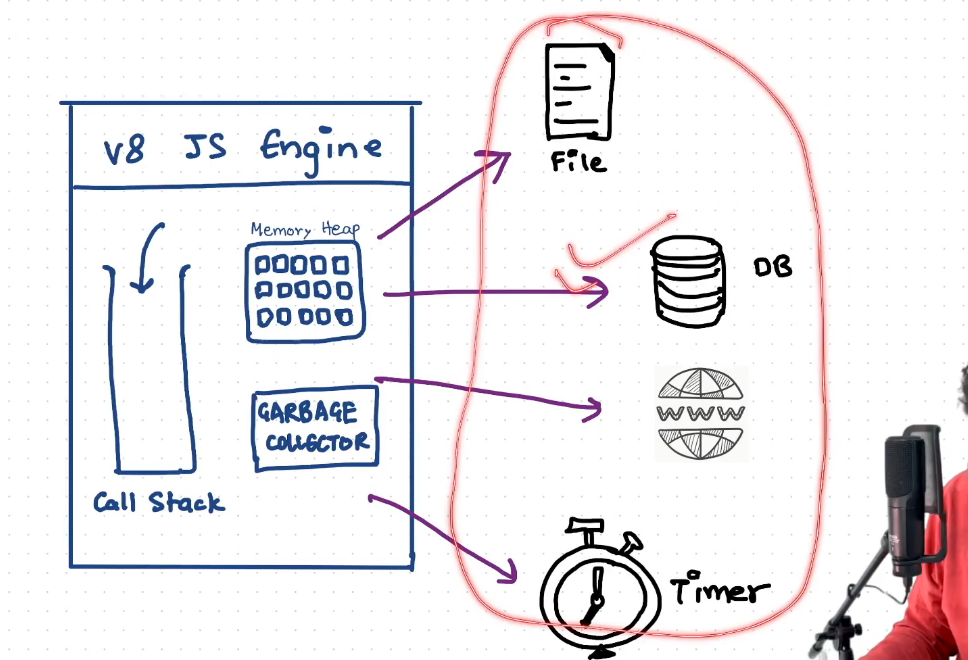 v8 JS Engine
Memory Heap
GARBAGE
COLLECTOR
Call Stack
File
DB
WWW
Timer